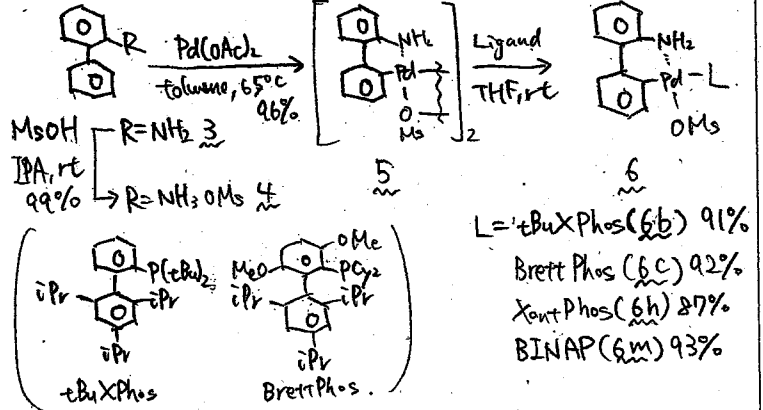 R
Pd(OAc)2
toluene, 65°C
96%
NH2
Pd
O
Ms
2
Ligand
THF, rt
NH2
Pd-L
OMs
MsOH
R=NH2 3
IPA, rt
99%
R=NH3OMs 4
5
6
L= tBuXPhos (6b) 91%
BrettPhos (6c) 92%
XantPhos (6h) 87%
BINAP (6m) 93%
P(tBu)2
iPr
iPr
iPr
tBuXPhos
OMe
MeO
PCy2
iPr
iPr
iPr
BrettPhos.